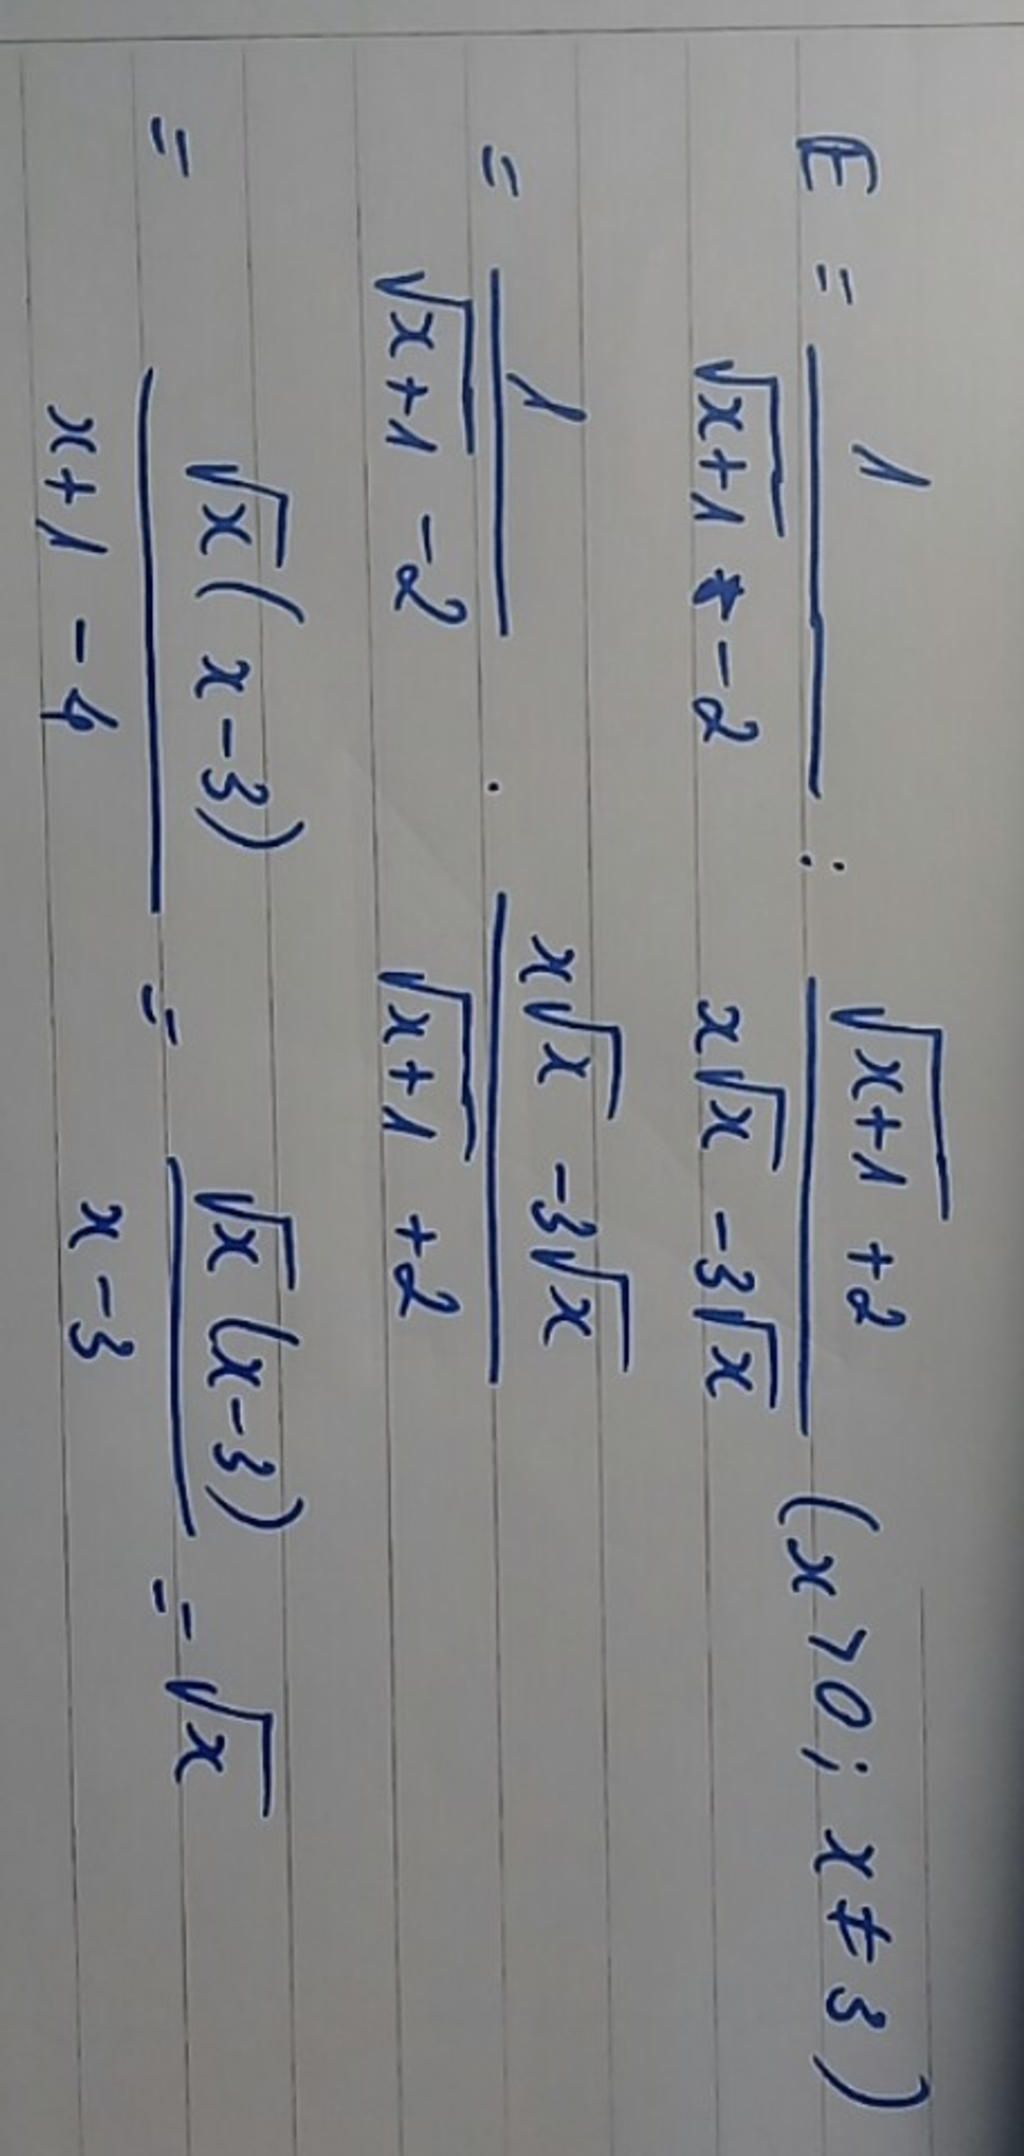 E = 1/(√(x+1) - 2) : (√(x+1) + 2)/(x√x - 3√x) (x > 0; x ≠ 3)
= 1/(√(x+1) - 2) . (x√x - 3√x)/(√(x+1) + 2)
= √x(x - 3)/(x + 1 - 4) = √x(x - 3)/(x - 3) = √x